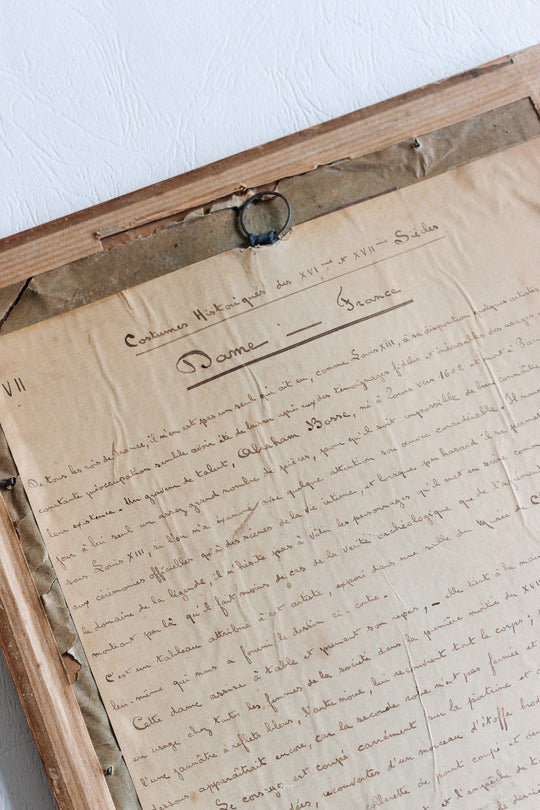 Costumes Historiques des XVIème et XVIIème Siècles
Dame — France
VII
De tous les rois de France, il n'en est pas un seul qui ait eu, comme Louis XIII, à sa disposition quelques artistes
constante préoccupation semble avoir été de laisser après eux des témoignages fidèles et industriels des usages
leur existence. Un graveur de talent, Abraham Bosse, né à Tours vers 1602 et mort à Paris
jour à lui seul un assez grand nombre de pièces, pour qu'il soit impossible de bien connaître
sous Louis XIII, si l'on n'a examiné avec quelque attention son œuvre considérable. Il nous
aux cérémonies officielles qu'à des scènes de la vie intime, et lorsque par hasard il se permet
le domaine de la légende, il n'hésite pas à vêtir les personnages qu'il met en scène comme
montrant par là qu'il fait moins de cas de la vérité archéologique que de l'
C'est un tableau attribué à cet artiste, exposé dans une salle du Musée de C
lui-même, qui nous a fourni le dessin ci-contre.
Cette dame assise à table et prenant son repas, — elle tient à la main
en usage chez tout les femmes de la société dans la première moitié du XVII
l'une jaunâtre à reflets bleus, l'autre noire, lui recouvrent tout le corps;
dessous apparaîtrait encore, car la seconde robe n'est pas fermée et
Le corsage est coupé carrément sur la poitrine et
recouvertes d'un morceau d'étoffe
collerette de point coupé et
et l'empêche de